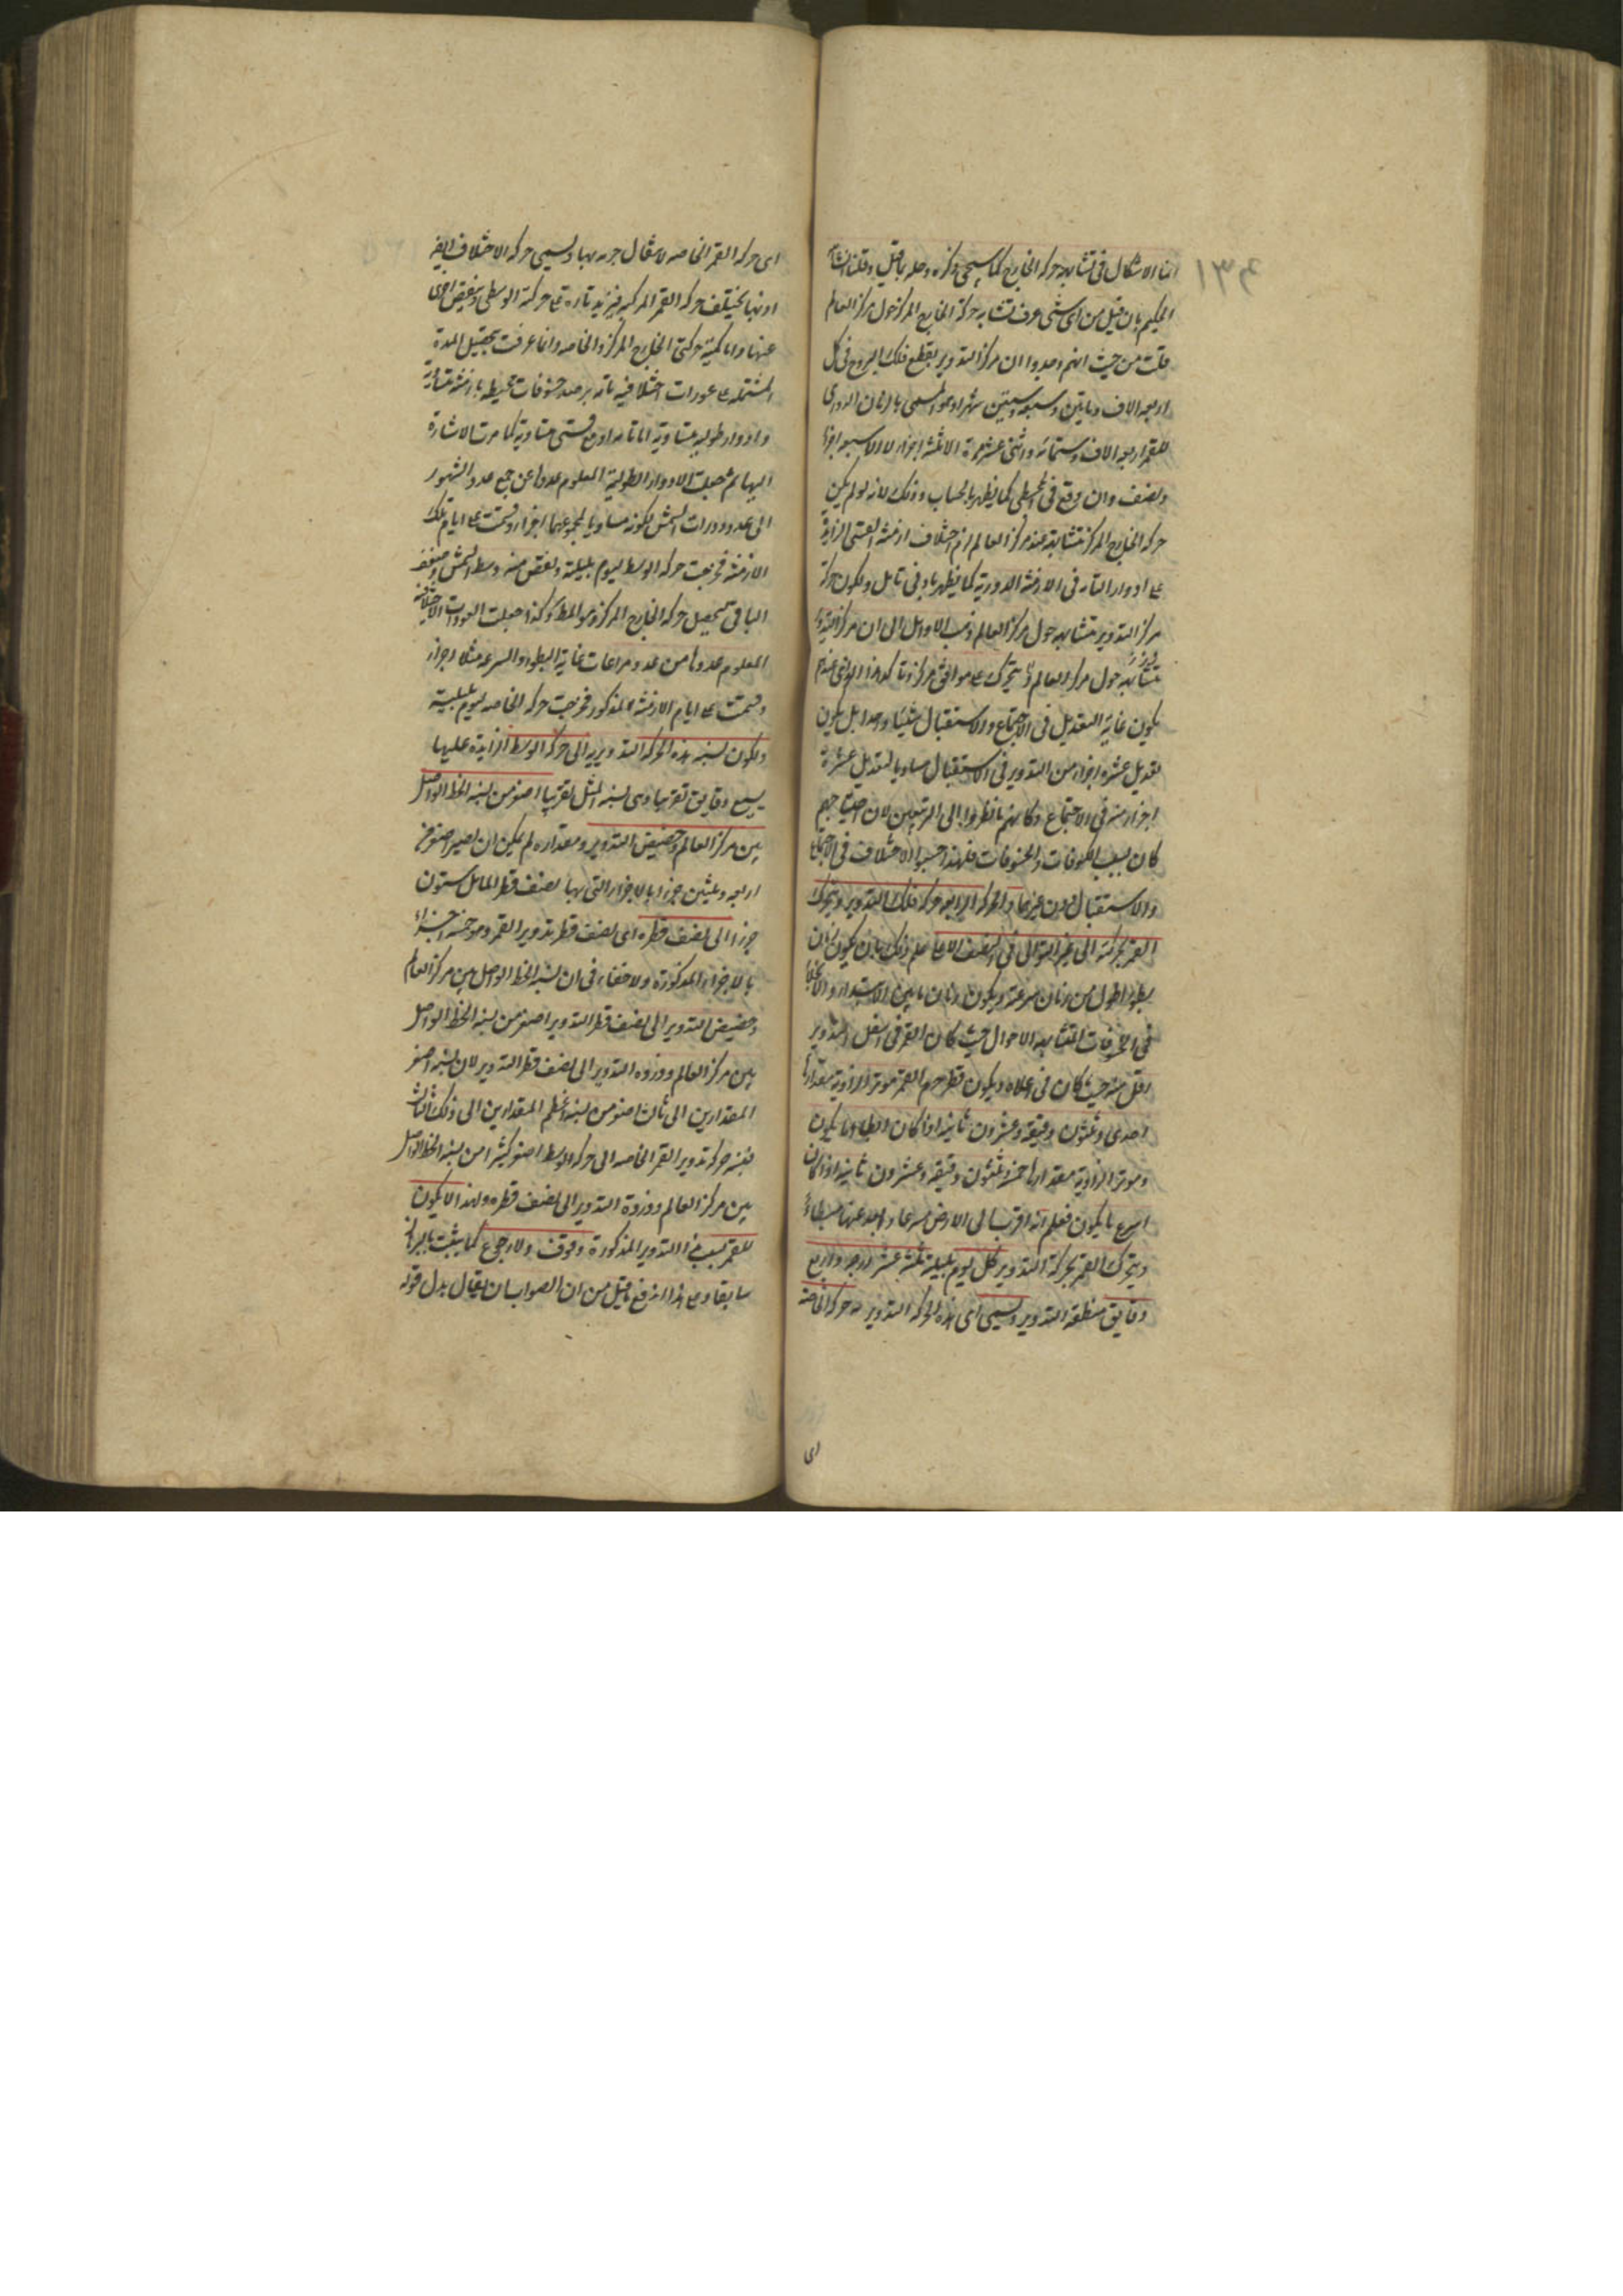 ١٣٤
انما الاشكال فى تشابه حركة الخارج كما سيجى ذكره وحله
بان قيل من اى شئ عرف تشابه حركة الخارج المركز حول مركز العالم
قلت من حيث انهم وجدوا ان مركز التدوير يقطع فلك البروج فى كل
اربعة الاف ومايتين وسبعة وستين شهرا وهو المسمى بالزمان الدورى
للقمر اربعة الاف وستمائة واثنى عشر مرة الا ثلثة اجزاء لا الا سبعة اجزاء
ونصف وان وقع فى المجسطى كما يظهر بالحساب وذلك لانه لو لم يكن
حركة الخارج المركز متشابهة عند مركز العالم لزم اختلاف ازمنة القسى الزايدة
على ادوار التامة فى الازمنة الدورية كما يظهر بادنى تامل ولكون حركة
مركز التدوير متشابهة حول مركز العالم ذهب الاوايل الى ان مركز التدوير
متشابهة حول مركز العالم يتحرك على موافق مركز
يكون غاية التعديل فى الاجتماع والاستقبال شيئا واحدا بل يكون
تعديل عشرة اجزاء من التدوير فى الاستقبال مساويا لتعديل عشرة
اجزاء منه فى الاجتماع وكانهم ما نظروا الى التربيعين لان احتياجهم
كان بسبب الكسوفات والخسوفات فلهذا حسبوا الاختلاف فى الاجتماع
والاستقبال دون غيرهما والحركة الرابعة حركة فلك التدوير ويتحرك
القمر بحركته الى غير التوالى فى النصف الاعلى علم ذلك بان يكون زمان
بطوه اطول من زمان سرعته وبكون زمان ما بين الابتداء والانجلاء
فى الخسوفات المتشابهة الاحوال حيث كان القمر فى اسفل التدوير
اقل منه حيث كان فى اعلاه وبكون قطر جرم القمر موتر الزاوية مقدارها
احدى وثلثون دقيقة وعشرون ثانية اذا كان ابطا ما يكون
وموتر الزاوية مقدارها خمسة وثلثون دقيقة وعشرون ثانية اذا كان
اسرع ما يكون فعلم انه اقرب الى الارض سريعا وابعد عنها بطيئا
ويتحرك القمر بحركة التدوير كل يوم بليلة ثلثة عشر درجة واربع
دقايق منطقة التدوير وتسمى اى هذه الحركة التدويرية حركة الخاصة
اى
اى حركة القمر الخاصة لانتقال جرمه بها وتسمى حركة الاختلاف ايضا
اذ بها يختلف حركة القمر المركبة فيزيد تارة على حركته الوسطى وينقص اخرى
عنها واما كمية حركتى الخارج المركز والخاصة وانما عرفت بتحصيل المدة
المشتملة على عودات اختلافية تامة برصد خسوفات محيطة بازمنة متساوية
وادوار طولية متساوية اما تامة او مع قسى متساوية كما مرت الاشارة
اليها ثم جعلت الادوار الطولية المعلوم عددها عن جمع عدد الشهور
الى عدد دورات الشمس لكونه مساويا لمجموعهما اجزاء وقسمت على ايام تلك
الازمنة فخرجت حركة الوسط ليوم بليلته ونقص منه وسط الشمس وضعف
الباقى لتحصيل حركة الخارج المركز وهو المط وكذا جعلت العودات الاختلافية
المعلوم عددها من عدد مراعات غاية البطوء والسرعة مثلا اجزاء
وقسمت على ايام الازمنة المذكور فخرجت حركة الخاصة ليوم بليلته
ولكون نسبة هذه الحركة التدويرية الى حركة الوسط الزايدة عليها
بسبع دقايق تقريبا وهى نسبة المثل تقريبا اصغر من نسبة الخط الواصل
بين مركز العالم وحضيض التدوير ومقداره لم يكن ان يصير اصغر من
اربعة وثلثين جزءا بالاجزاء التى بها نصف قطر المائل ستون
جزءا الى نصف قطره اى نصف قطر تدوير القمر وهو خمسة اجزاء
بالاجزاء المذكورة ولا خفاء فى ان نسبة الخط الواصل بين مركز العالم
وحضيض التدوير الى نصف قطر التدوير اصغر من نسبة الخط الواصل
بين مركز العالم وذروة التدوير الى نصف قطر التدوير لان نسبة اصغر
المقدارين الى ثالث اصغر من نسبة اعظم المقدارين الى ذلك الثالث
فنسبة حركة تدوير القمر الخاصة الى حركة الوسط اصغر كثيرا من نسبة الخط الواصل
بين مركز العالم وذروة التدوير الى نصف قطره ولهذا لا يكون
للقمر بسبب هذا التدوير المذكورة وقوف ولا رجوع كما يثبت بالبرهان
سابقا وعلى هذا اندفع ما قيل من ان الصواب ان يقال بدل قوله